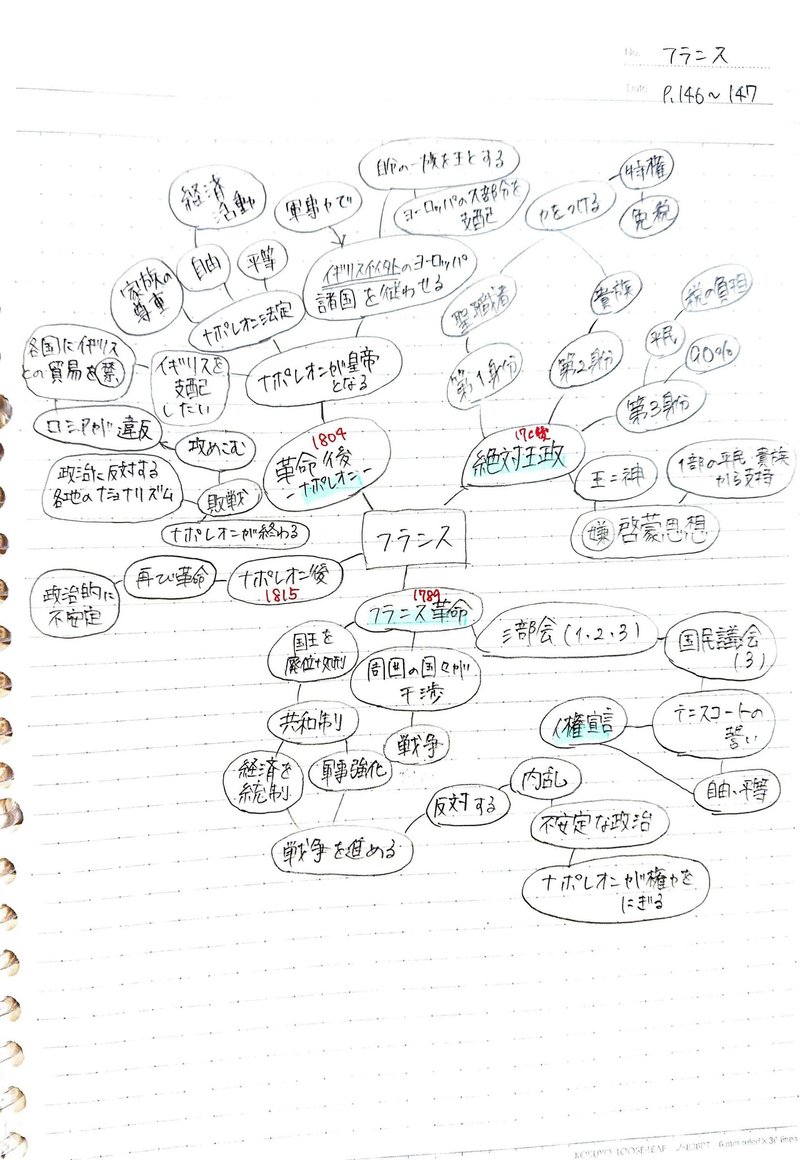 No. フランス
Date P.146〜147
フランス
17C後
絶対王政
第1身分
聖職者
第2身分
貴族
力をつける
特権
免税
第3身分
平民
税の負担
90%
王=神
嫌 啓蒙思想
1部の平民・貴族
から支持
1789
フランス革命
三部会(1、2、3)
国民議会
(3)
テニスコートの
誓い
自由、平等
人権宣言
周囲の国々が
干渉
戦争
国王を
廃位+処刑
共和制
経済を
統制
軍事強化
戦争を進める
反対する
内乱
不安定な政治
ナポレオンが権力を
にぎる
1804
革命後
-ナポレオン-
ナポレオンが皇帝
となる
ナポレオン法定
平等
自由
経済
活動
家族の
尊重
イギリスイイタトのヨーロッパ
諸国を従わせる
軍事力で
自分の一族を王とする
ヨーロッパの大部分を
支配
イギリスを
支配
したい
各国にイギリス
との貿易を禁
ロシアが違反
攻めこむ
敗戦
政治に反対する
各地のナショナリズム
ナポレオンが終わる
ナポレオン後
1815
再び革命
政治的に
不安定